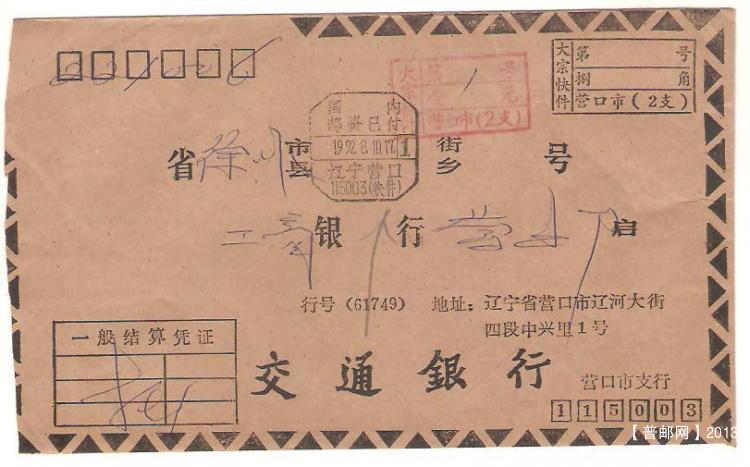 大宗快件
第 号
捌 角
营口市(2支)
大宗
第 1 号
元
市(2支)
国 内
邮资已付
1992.8.10.17 1
辽宁营口
115003(快件)
省 徐州 市县 街乡 号
工商 银 行 营业部 启
行号(61749) 地址:辽宁省营口市辽河大街
四段中兴里1号
一般结算凭证
交通銀行 营口市支行
115003
【普邮网】2013